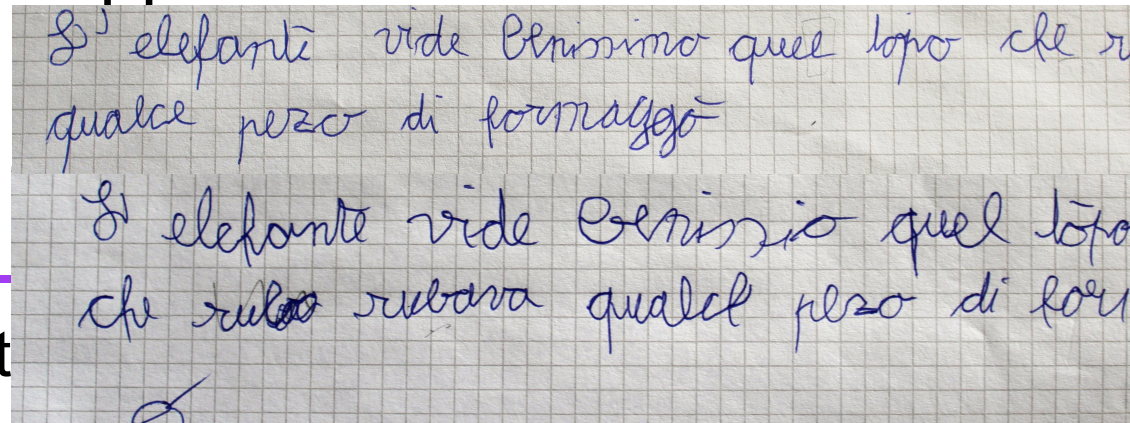 L' elefante vide benissimo quel topo che r
qualce pezo di formaggo
L' elefante vide benissio quel topo
che rubava qualce pezo di for
t